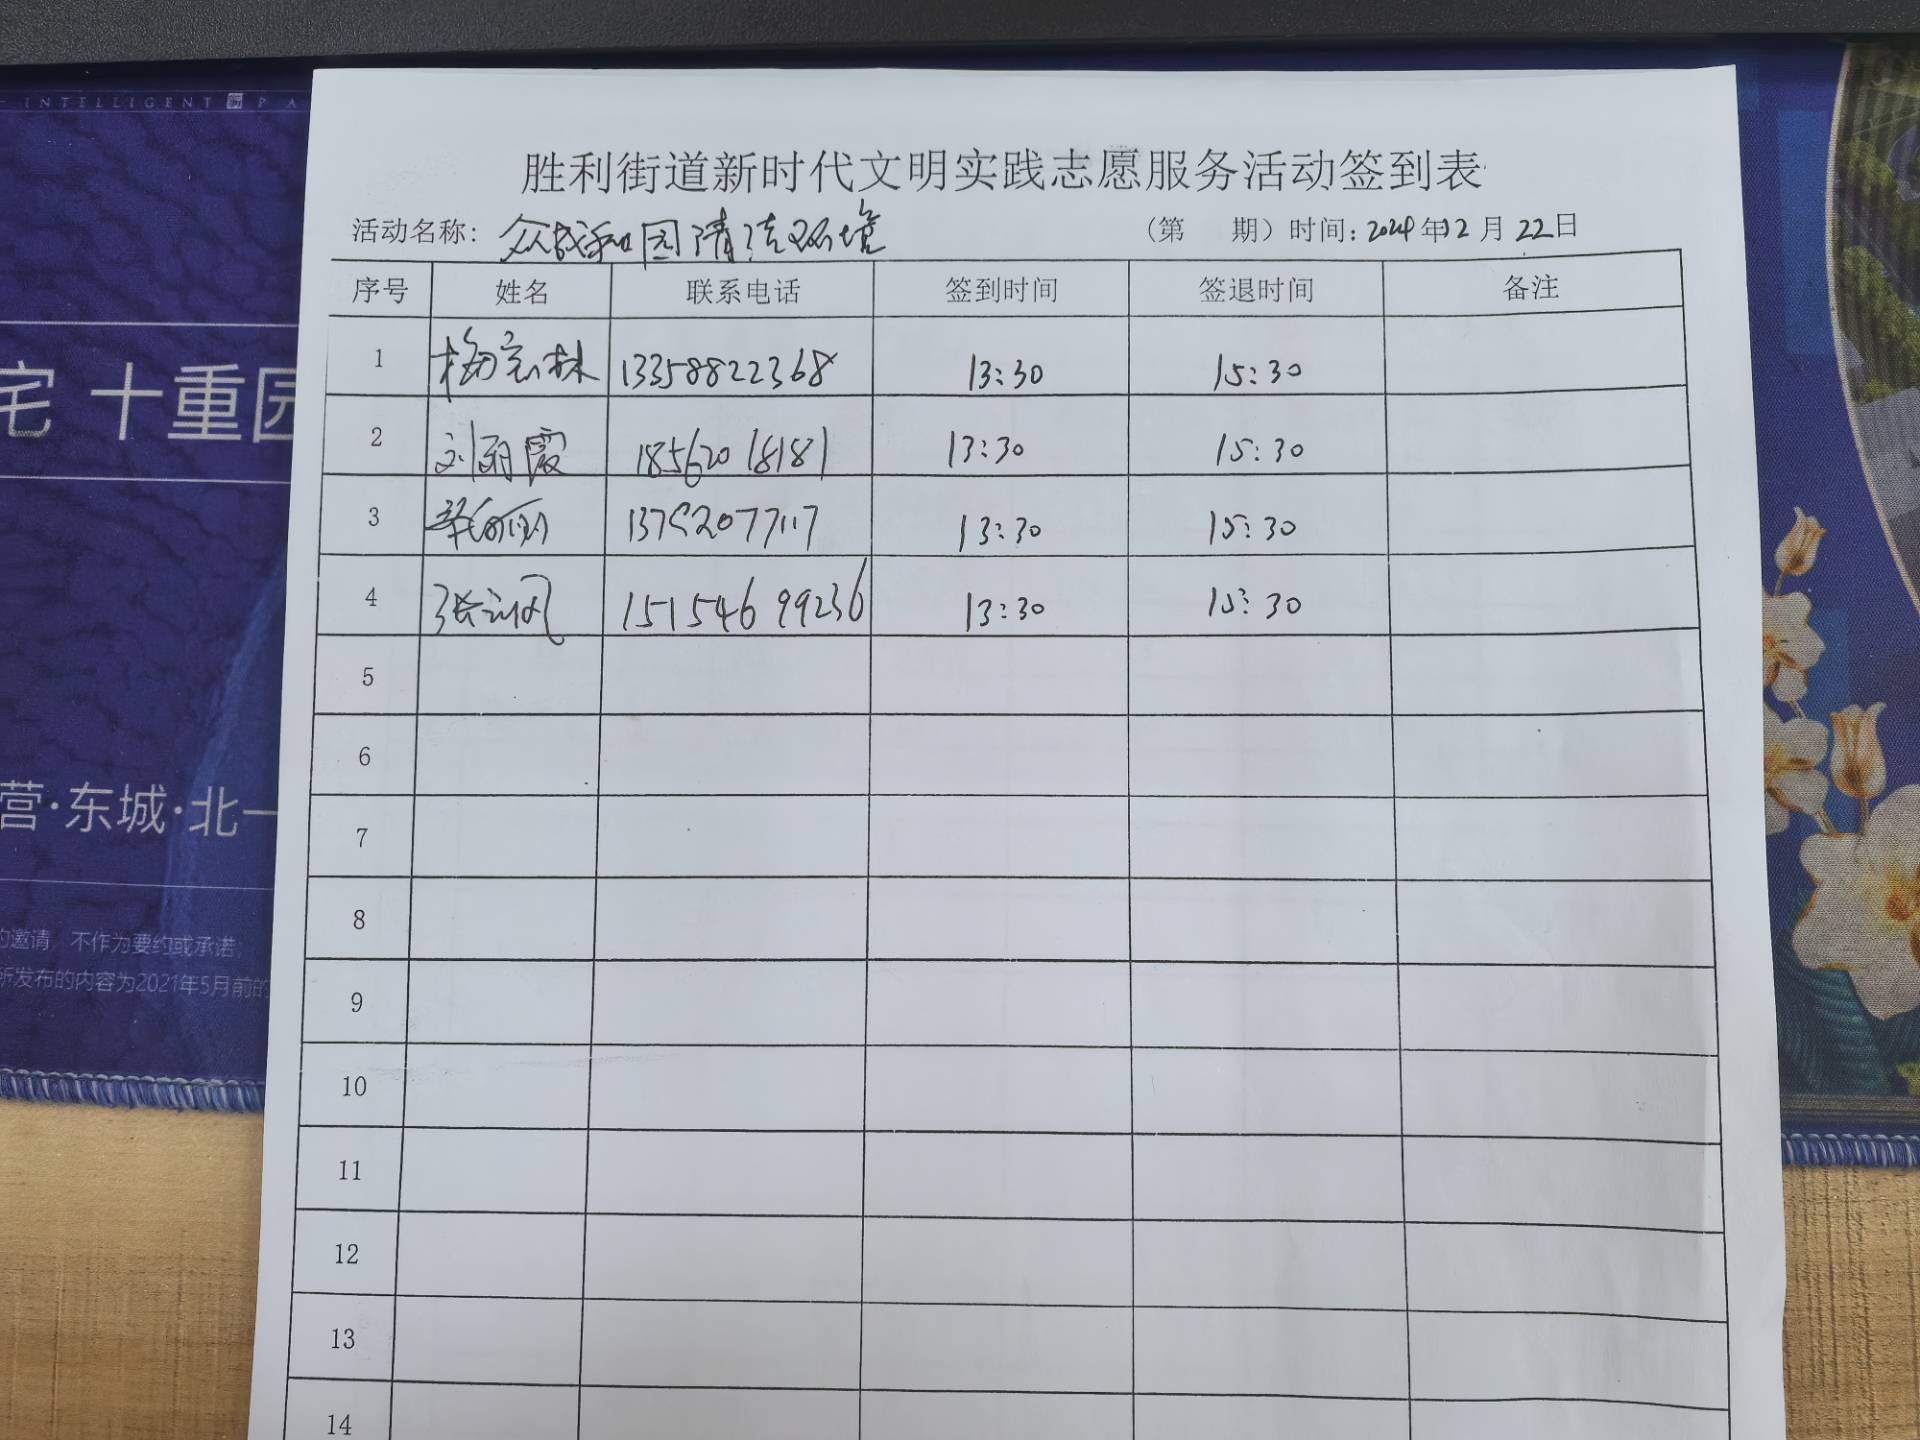 INTELLIGENT PA
宅 十重园
营·东城·北一
的邀请，不作为要约或承诺；
所发布的内容为2021年5月前的
胜利街道新时代文明实践志愿服务活动签到表
活动名称：众成和园清洁环境 （第 期）时间：2024年12月22日
序号 姓名 联系电话 签到时间 签退时间 备注
1 梅宗林 13358822368 13:30 15:30
2 刘丽霞 18562018181 13:30 15:30
3 13:30 15:30
4 张 风 15154699236 13:30 15:30
5
6
7
8
9
10
11
12
13
14